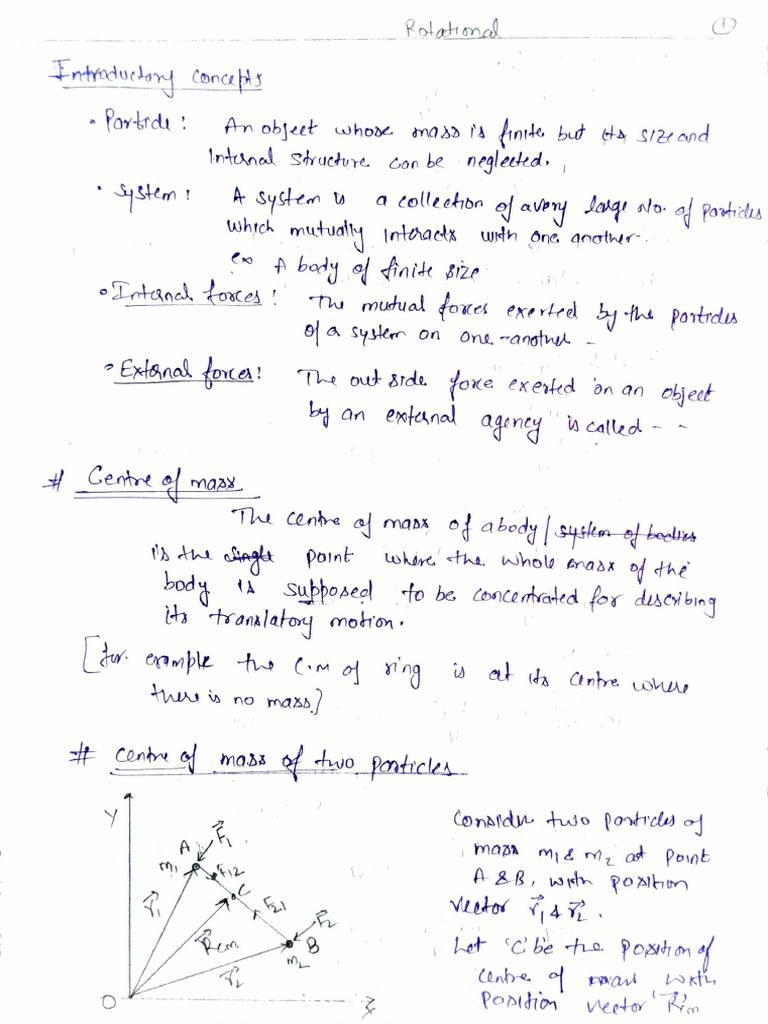 Rotational
①
Introductory concepts
• Particle : An object whose mass is finite but its size and
internal structure can be neglected.
• System : A system is a collection of a very large No. of particles
which mutually interacts with one another.
ex A body of finite size
• Internal forces : The mutual forces exerted by the particles
of a system on one-another -
• External forces : The out side force exerted on an object
by an external agency is called - -
# Centre of mass
The centre of mass of a body / system of bodies
is the single point where the whole mass of the
body is supposed to be concentrated for describing
its translatory motion.
[for example the C.M of ring is at its centre where
there is no mass]
# Centre of mass of two particles
Y
A
F⃗1
m1
F12
C
F21
F⃗2
B
m2
r⃗1
R⃗cm
r⃗2
O
X
Consider two particles of
mass m1 & m2 at point
A & B, with position
vector r⃗1 & r⃗2.
Let 'C' be the position of
centre of mass with
position vector R⃗cm